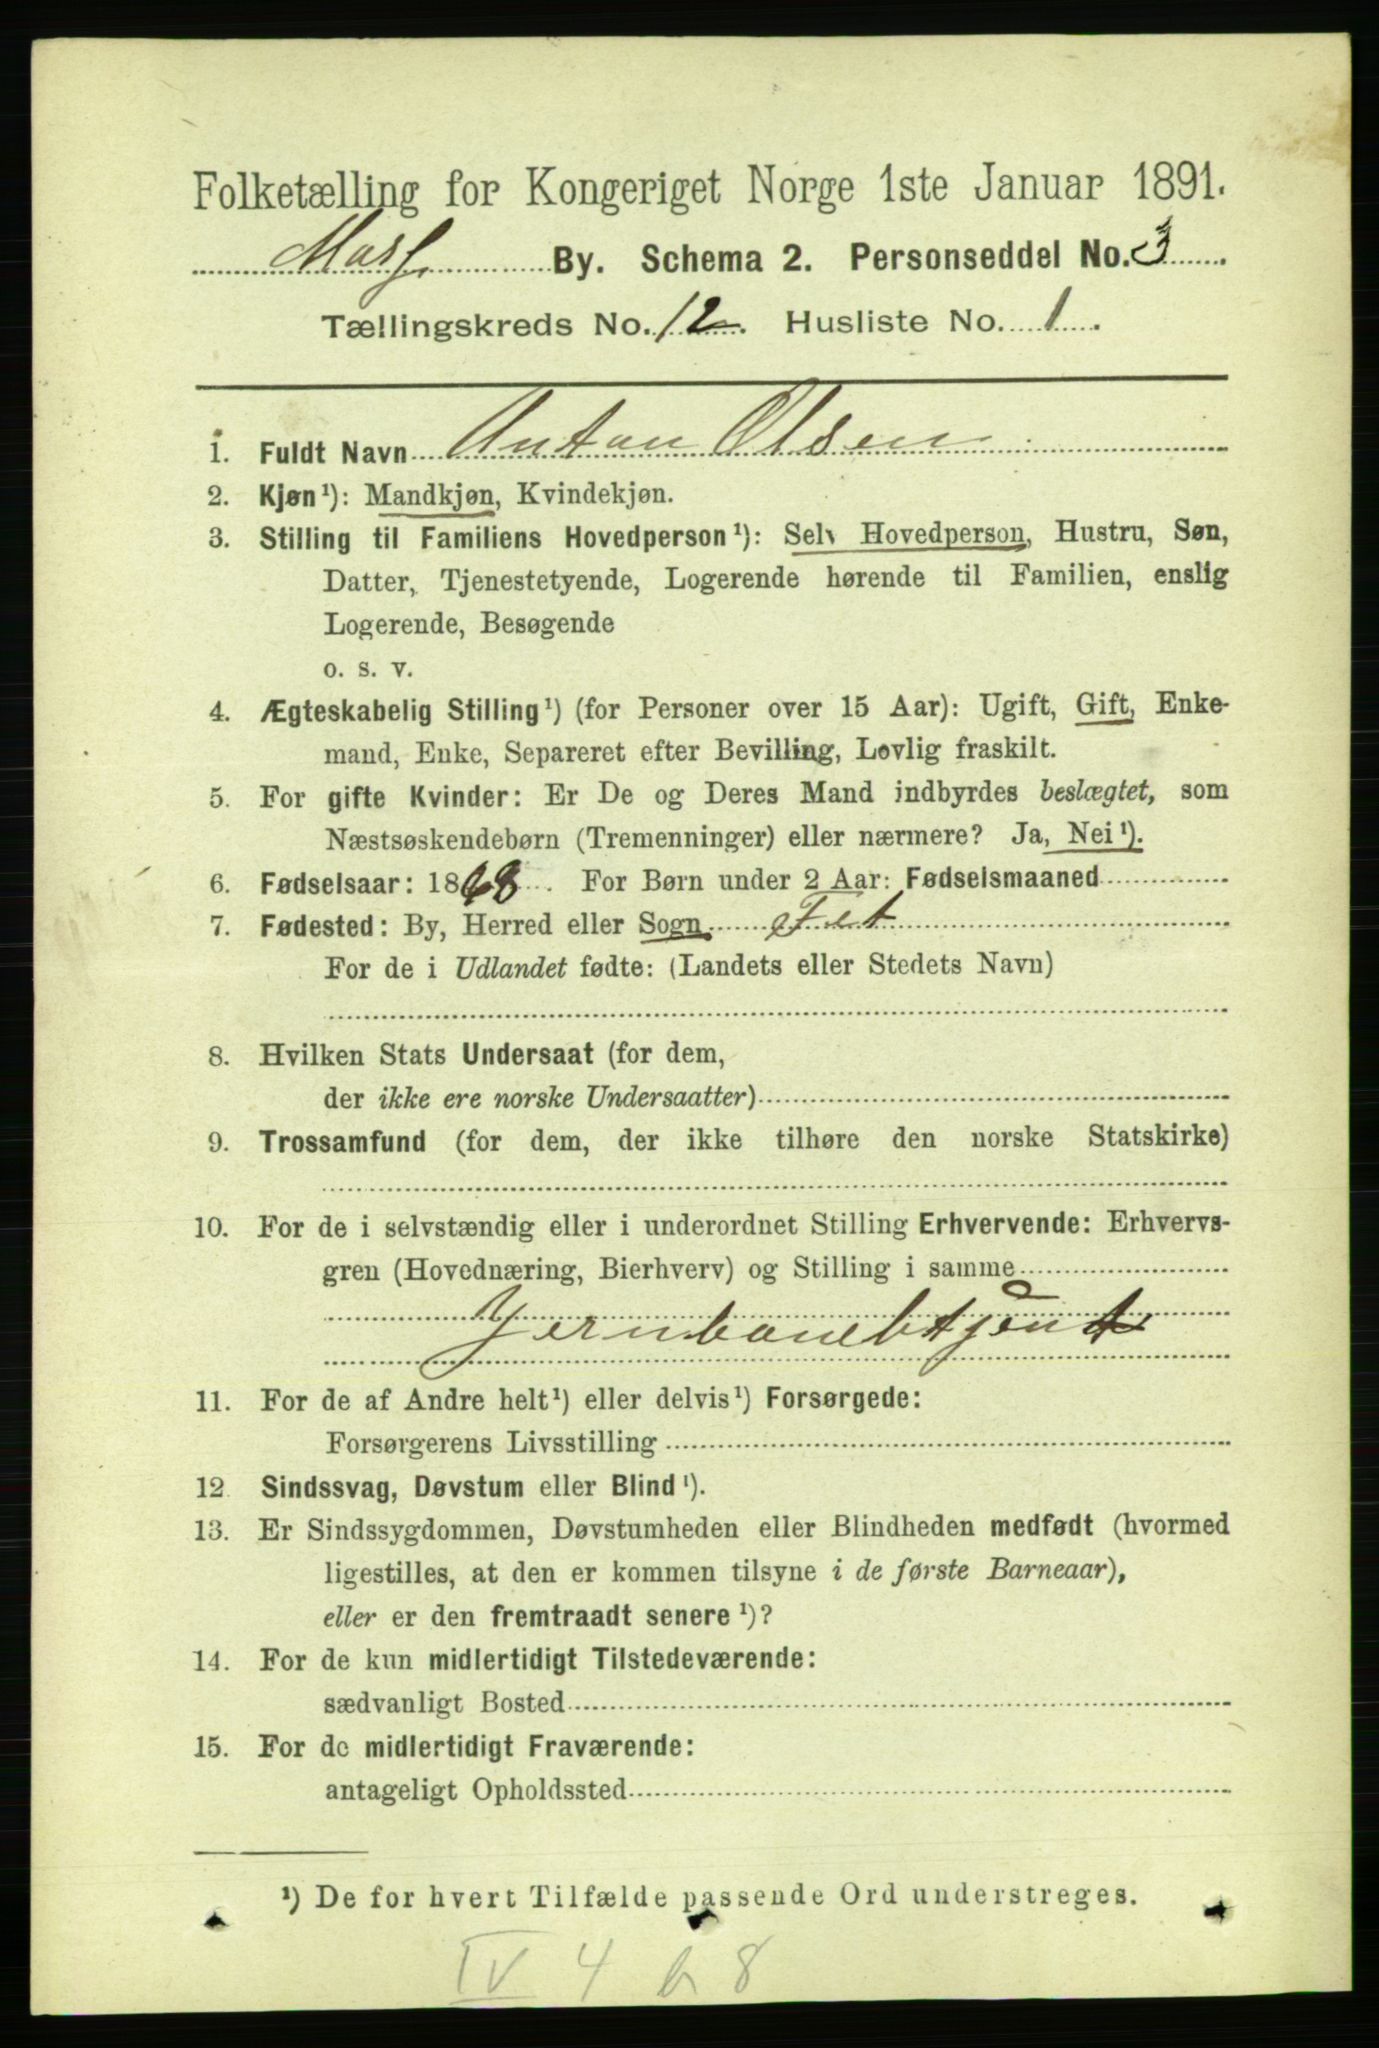 Folketælling for Kongeriget Norge 1ste Januar 1891.
Moss. By. Schema 2. Personseddel No. 3
Tællingskreds No. 12. Husliste No. 1.
1. Fuldt Navn Anton Olsen
2. Kjøn¹): Mandkjøn, Kvindekjøn.
3. Stilling til Familiens Hovedperson¹): Selv Hovedperson, Hustru, Søn,
Datter, Tjenestetyende, Logerende hørende til Familien, enslig
Logerende, Besøgende
o. s. v.
4. Ægteskabelig Stilling¹) (for Personer over 15 Aar): Ugift, Gift, Enke-
mand, Enke, Separeret efter Bevilling, Lovlig fraskilt.
5. For gifte Kvinder: Er De og Deres Mand indbyrdes beslægtet, som
Næstsøskendebørn (Tremenninger) eller nærmere? Ja, Nei¹).
6. Fødselsaar: 1868. For Børn under 2 Aar: Fødselsmaaned
7. Fødested: By, Herred eller Sogn Fet
For de i Udlandet fødte: (Landets eller Stedets Navn)
8. Hvilken Stats Undersaat (for dem,
der ikke ere norske Undersaatter)
9. Trossamfund (for dem, der ikke tilhøre den norske Statskirke)
10. For de i selvstændig eller i underordnet Stilling Erhvervende: Erhvervs-
gren (Hovednæring, Bierhverv) og Stilling i samme
Jernbanebtjent
11. For de af Andre helt¹) eller delvis¹) Forsørgede:
Forsørgerens Livsstilling
12 Sindssvag, Døvstum eller Blind¹).
13. Er Sindssygdommen, Døvstumheden eller Blindheden medfødt (hvormed
ligestilles, at den er kommen tilsyne i de første Barneaar),
eller er den fremtraadt senere¹)?
14. For de kun midlertidigt Tilstedeværende:
sædvanligt Bosted
15. For de midlertidigt Fraværende:
antageligt Opholdssted
¹) De for hvert Tilfælde passende Ord understreges.
IV 4 b 8